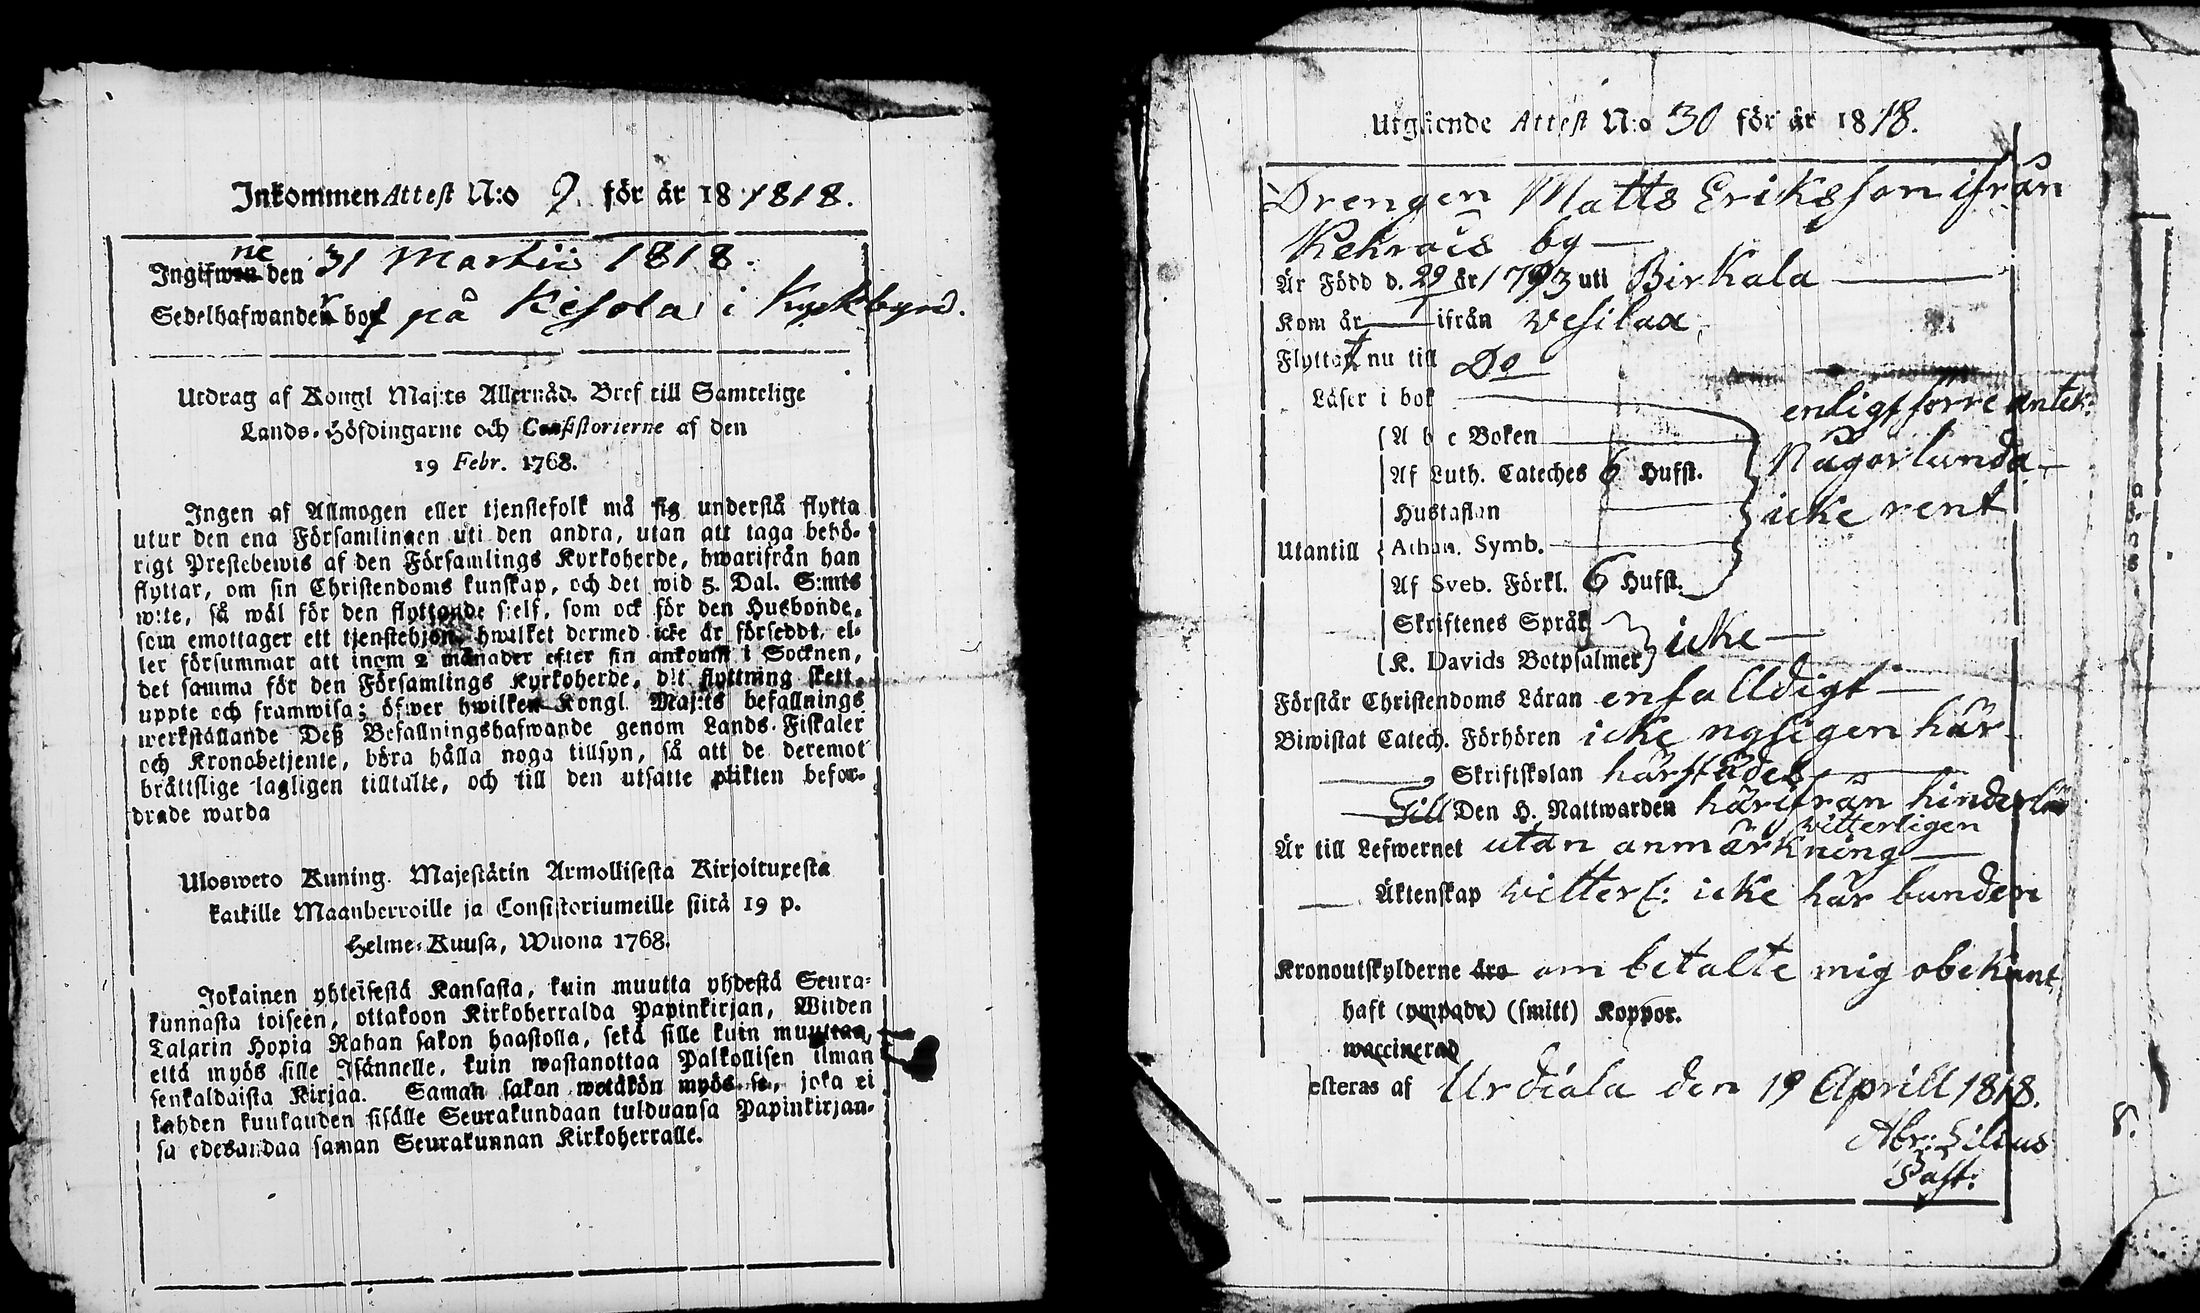 Inkommen Attest N:o 9. för år 18 1818.
ne
Ingifwen den 31 Martii 1818.
Sedelhafwanden bor på Kesola i Kyrkbyn.
Utdrag af Kongl Maj:ts Allernåd. Bref till Samtelige
Lands-Höfdingarne och Consistorierne af den
19 Febr. 1768.
Ingen af Allmogen eller tjenstefolk må sig understå flytta
utur den ena Församlingen uti den andra, utan att taga behö-
rigt Prestebewis af den Församlings Kyrkoherde, hwarifrån han
flyttar, om sin Christendoms kunskap, och det wid 5. Dal. S:mts
wite, så wäl för den flyttande sjelf, som ock för den Husbonde,
som emottager ett tjenstehjon, hwilket dermed icke är försedt, el-
ler försummar att inom 2 månader efter sin ankomst i Socknen,
det samma för den Församlings Kyrkoherde, dit flyttning skett,
uppte och framwisa; öfwer hwilken Kongl. Maj:ts befallnings
werkställande Deß Befallningshafwande genom Lands-Fiskaler
och Kronobetjente, böra hålla noga tillsyn, så att de deremot
bråttslige lagligen tilltalte, och till den utsatte plikten befor-
drade warda
Ulosweto Kuning. Majestätin Armollisesta Kirjoituxesta
kaikille Maanherroille ja Consistoriumeille siitä 19 p.
Helme-Kuusa, Wuona 1768.
Jokainen yhteisestä Kansasta, kuin muutta yhdestä Seura-
kunnasta toiseen, ottakoon Kirkoherralda Papinkirjan, Wiiden
Talarin Hopia Rahan sakon haastolla, sekä sille kuin muuttaa,
että myös sille Isännelle, kuin wastanottaa Palkollisen ilman
senkaldaista Kirjaa. Saman sakon wetäkön myös se, joka ei
kahden kuukauden sisälle Seurakundaan tulduansa Papinkirjan-
sa edesandaa saman Seurakunnan Kirkoherralle.
Utgående Attest N:o 30 för år 1818.
Drengen Matts Eriksson ifrån
Kehrois by
Är Född d. 29 år 1793 uti Birkala
Kom år ifrån Vesilax
Flyttar nu till Do
Läser i bok enligt förre antek:
A b c Boken
Af Luth. Cateches 6 Hufst. Någorlunda
Hustaflan icke rent
Utantill Athan. Symb.
Af Sveb. Förkl. 6 Hufst.
Skriftenes Språk
K. Davids Botpsalmer icke
Förstår Christendoms Läran enfalldigt
Biwistat Catech. Förhören icke nyligen här
Skriftskolan härstädes
Till Den H. Nattwarden härifrån hinderlös
witterligen
Är till Lefwernet utan anmärkning
Äktenskap witterl: icke här bunden
Kronoutskylderne äro om betalte mig obekant
haft (ympade) (smitt) Koppor.
waccinerad
esteras af Urdiala den 19 Aprill 1818.
Abr: Lilius
Past: